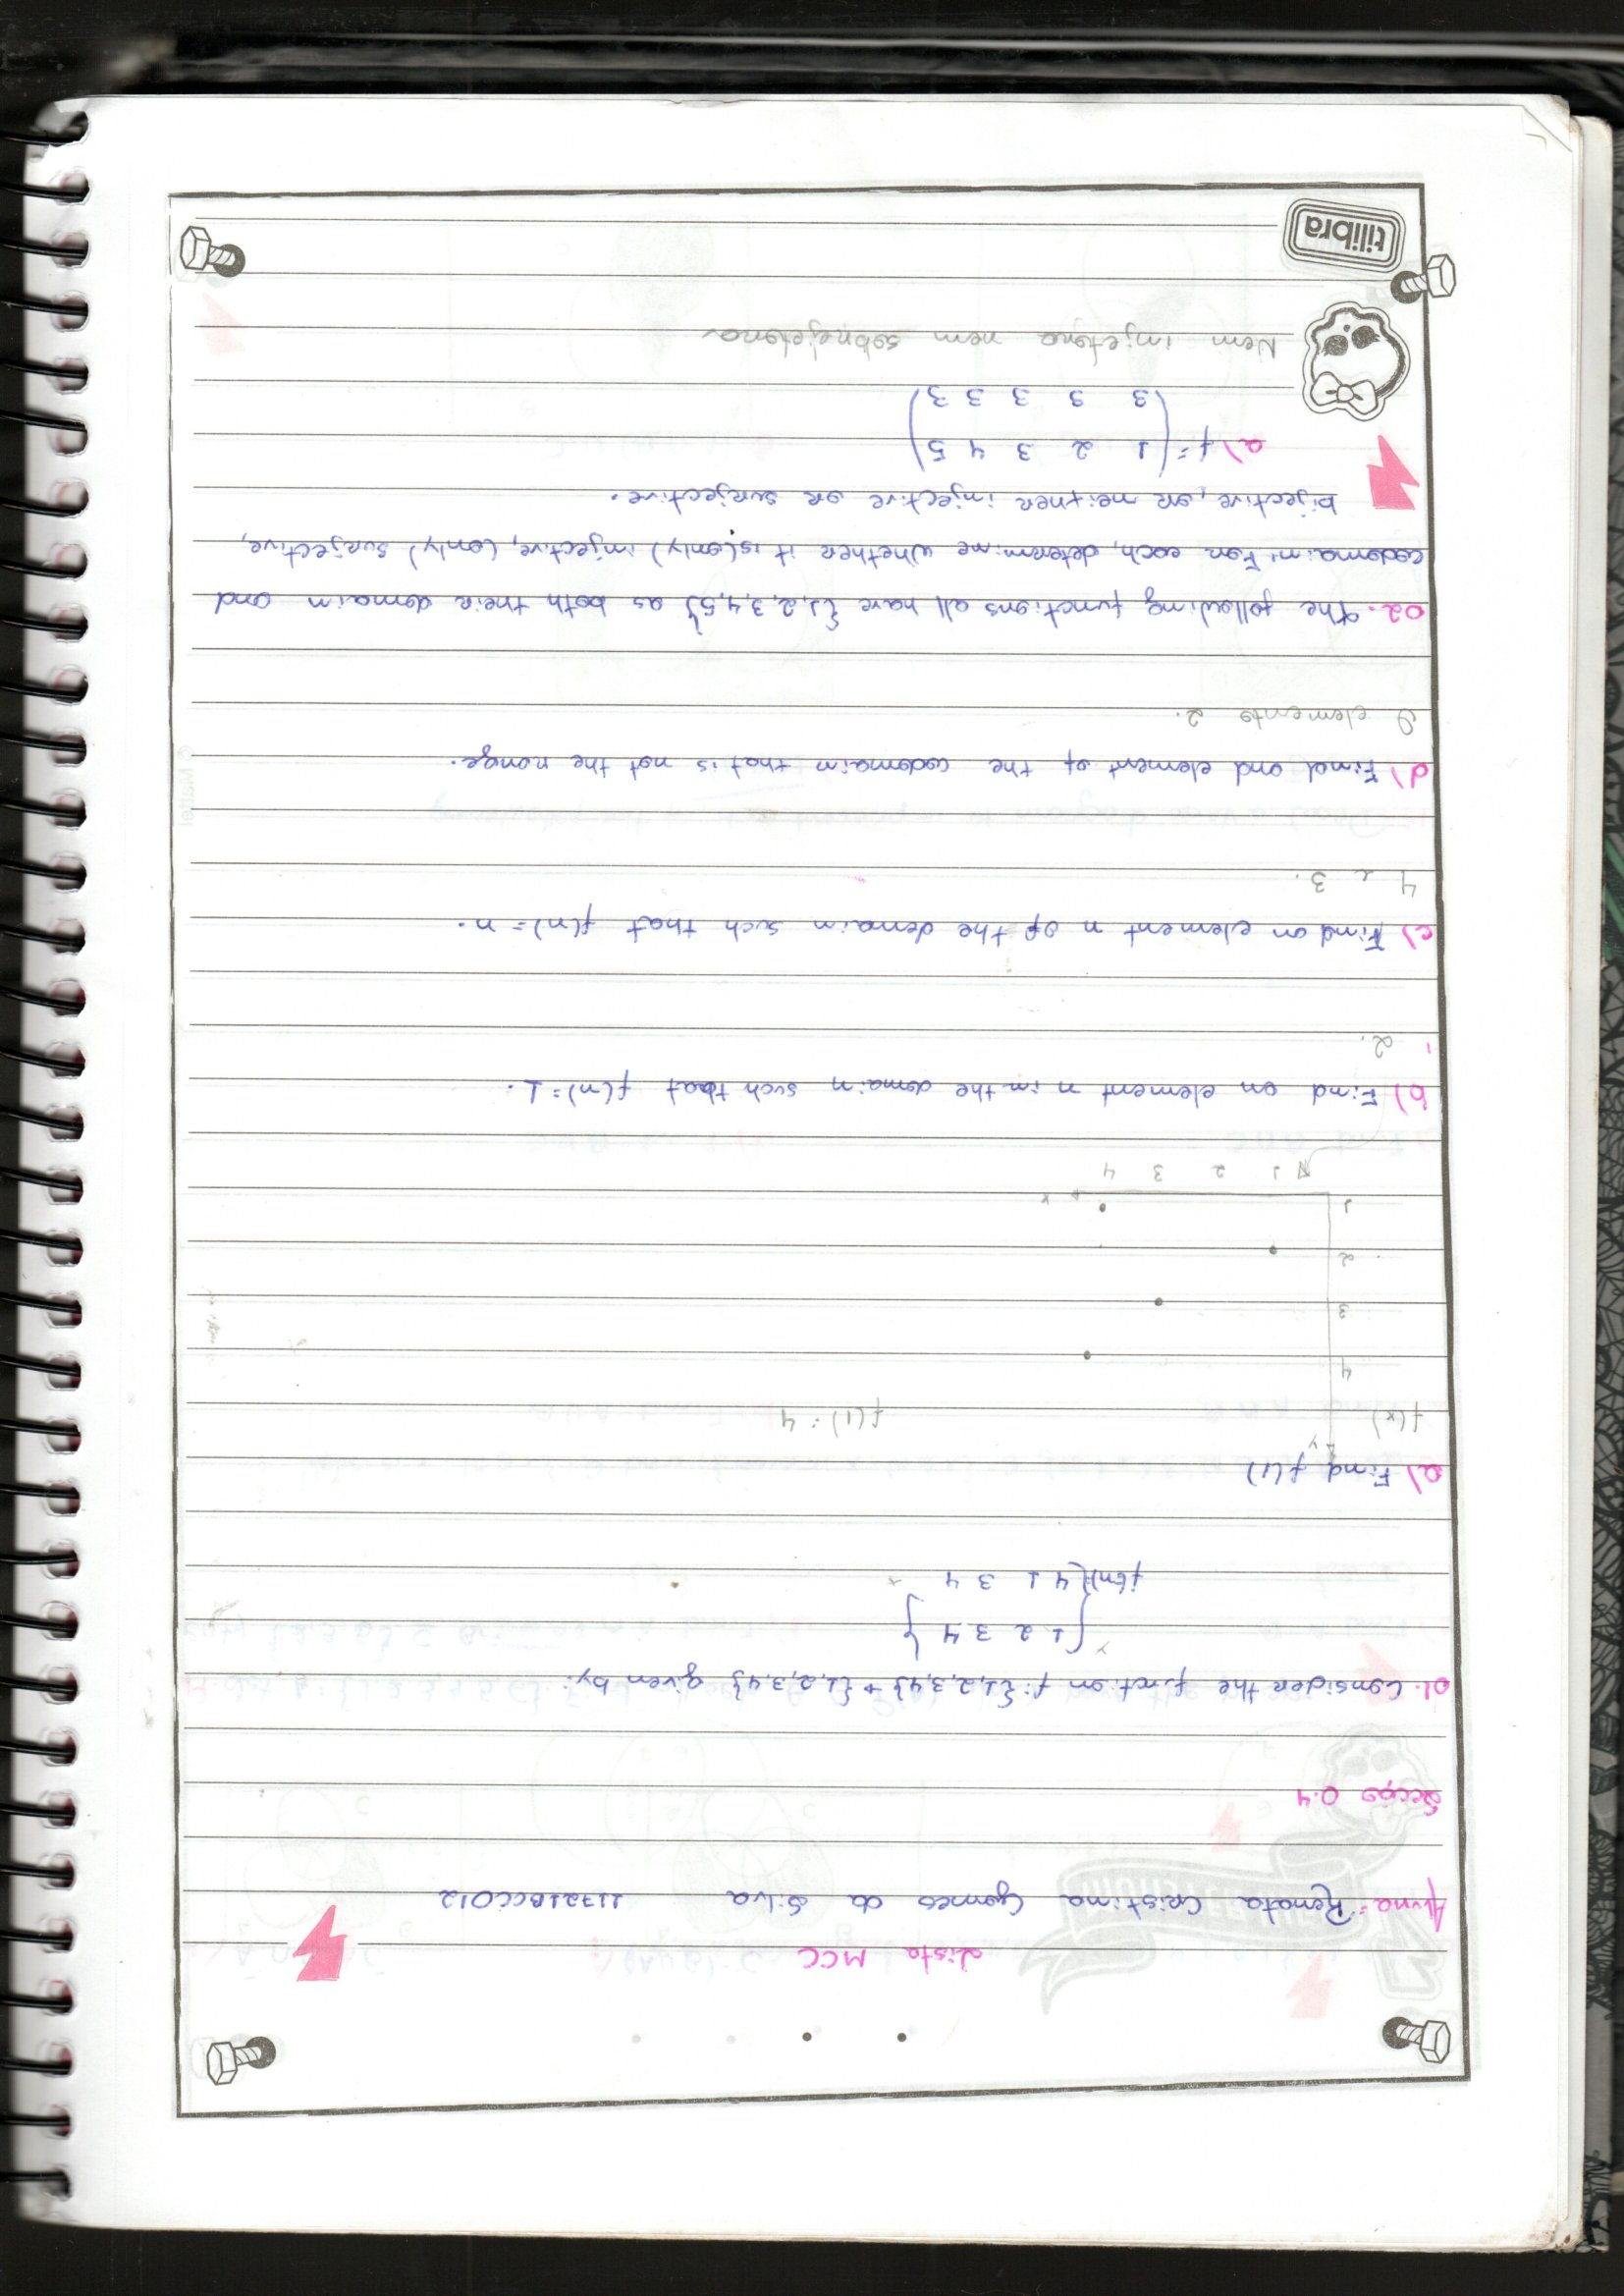 Lista MCC
Aluna: Renata Cristina Gomes da Silva 11721BCC012
Seção 0.4
01. Consider the function f: {1,2,3,4} → {1,2,3,4} given by:
x { 1 2 3 4 }
f(n) { 4 1 3 4
a) Find f(1)
f(x) f(1) = 4
4
3
2
1
1 2 3 4 x
b) Find an element n in the domain such that f(n) = 1.
2.
c) Find an element n of the domain such that f(n) = n.
4 e 3.
d) Find and element of the codomain that is not the range.
O elemento 2.
02. The following functions all have {1,2,3,4,5} as both their domain and
codomain. For each, determine whether it is (only) injective, (only) surjective,
bijective, or neither injective or surjective.
a) f = ( 1 2 3 4 5 )
( 3 3 3 3 3 )
Nem injetora nem sobrejetora
tilibra